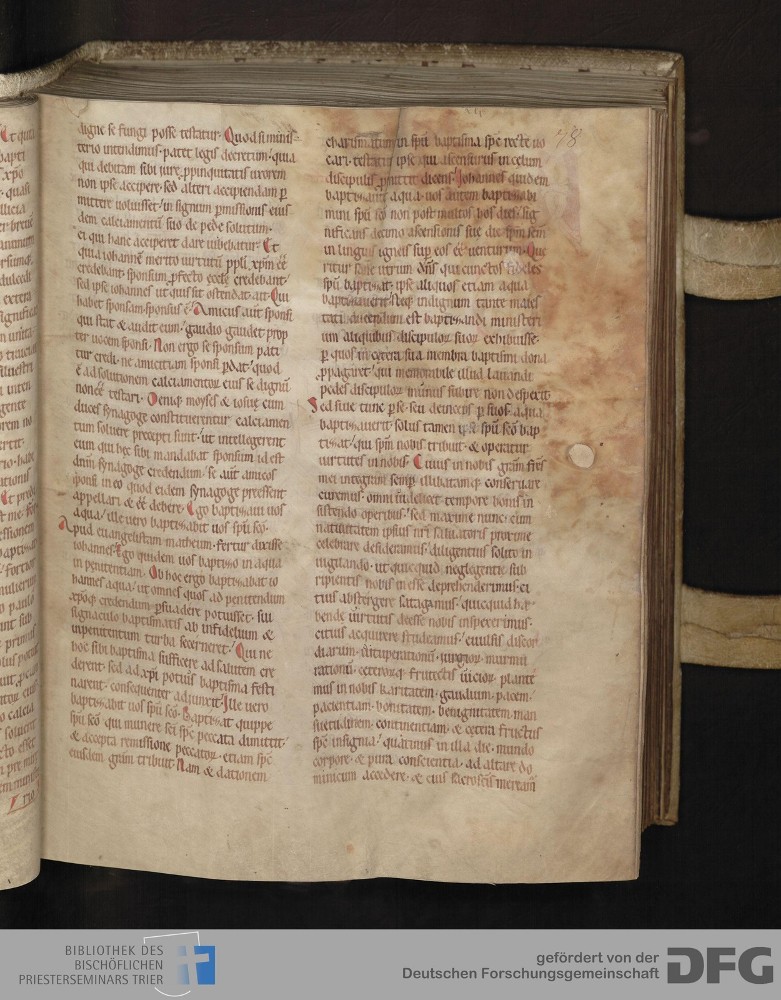 digne se fungi posse testatur. Quod si minis-
terio intendimus. patet legis decretum. quia
qui debitam sibi iure ppinquitatis uxorem
non ipse accipere. sed alteri accipiendam p
mittere uoluisset. in signum pmissionis eius
dem calciamentū suo de pede solutum.
ei qui hanc acciperet dare iubebatur. Et
quia iohannē merito uirtutū ppli xp̄m eē
credebant. sponsum pfecto eccłę credebant.
sed ipse iohannes ut quis sit ostendat. ait. Qui
habet sponsam. sponsus ē. Amicus aut sponsi
qui stat & audit eum. gaudio gaudet prop
ter uocem sponsi. Non ergo se sponsum pati
tur credi. ne amicitiam sponsi pdat. quod
ē ad solutionem calciamentoꝝ eius se dignū
non eē testari. Deniq moyses & iosue cum
duces synagogę constituerentur calciamen
tum soluere precepti sunt. ut intellegerent
eum qui hęc sibi mandabat sponsum id est
dnm synagogę credendum. se aut amicos
sponsi in eo quod eidem synagogę preessent
appellari & eē debere. Ego baptizaui uos
aqua. ille uero baptizabit uos spū sco.
Apud euangelistam matheum. fertur dixisse
iohannes. Ego quidem uos baptizo in aqua
in penitentiam. Ob hoc ergo baptizabat io
hannes aqua. ut omnes quos ad penitendum
xpoq credendum psuadere potuisset. sui
signaculo baptismatis ab infidelium &
inpenitentum turba secerneret. Qui ne
hoc sibi baptisma sufficere ad salutem cre
derent. sed ad xpi potius baptisma festi
narent. consequenter adiunxit. Ille uero
baptizabit uos spū sco. Baptizat quippe
spū sco qui munere sci spc peccata dimittit.
& accepta remissione peccatoꝝ. etiam spc
eiusdem gram tribuit. Nam & dationem
78
charismatum in spū baptisma spc recte uo
cari. testatur ipse qui ascensurus in celum
discipulis pmittit dicens. Iohannes quidem
baptizauit aqua. uos autem baptizabi
mini spū sco non post multos hos dies. sig
nificans decimo ascensionis sue die spm scm
in linguis igneis sup eos eē uenturum. Que
ritur sane utrum dns qui cunctos fideles
spū baptizat. ipse aliquos etiam aqua
baptizauerit. neq indignum tante maies
tati ducendum est baptizandi ministeri
um aliquibus discipuloꝝ suoꝝ exhibuisse.
p quos in cetera sua membra baptismi dona
ppagaret. qui memorabile illud lauandi
pedes discipuloꝝ munus subire non despexit.
Sed siue tunc p se. seu deinceps p suos aqua
baptizauerit. solus tamen ipse spū sco bap
tizat. qui spm nobis tribuit. & operatur
uirtutes in nobis. Cuius in nobis gram frs
mei integram semp illibatamq conseruare
curemus. omni uidelicet tempore bonis in
sistendo operibus. sed maxime nunc. cum
natiuitatem ipsius nri saluatoris proxime
celebrare desideramus. diligentius solito in
uigilando. ut quicquid neglegentie sub
ripientis nobis inesse deprehenderimus. ci
tius abstergere satagamus. quicquid ha
bende uirtutis deesse nobis inspexerimus.
citius acquirere studeamus. euulsis discor
diarum. uituperationū. iurgioꝝ. murmu
rationū. ceterorq fructetis uicioꝝ. plante
mus in nobis karitatem. gaudium. pacem.
pacientiam. bonitatem. benignitatem. man
suetudinem. continentiam. & cetera fructus
spc insignia. quatinus in illa die. mundo
corpore. & pura conscientia. ad altare do
minicum accedere. & eius sacroscis meream
BIBLIOTHEK DES
BISCHÖFLICHEN
PRIESTERSEMINARS TRIER
gefördert von der
Deutschen Forschungsgemeinschaft
DFG